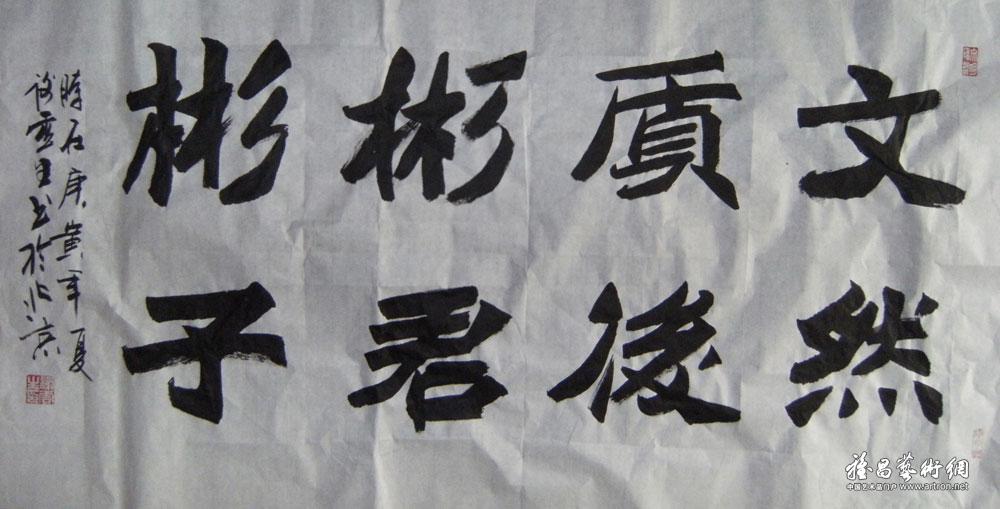 文質彬彬
然後君子
時在庚寅年夏
书於北京
雅昌藝術網
中国艺术品门户 www.artron.net